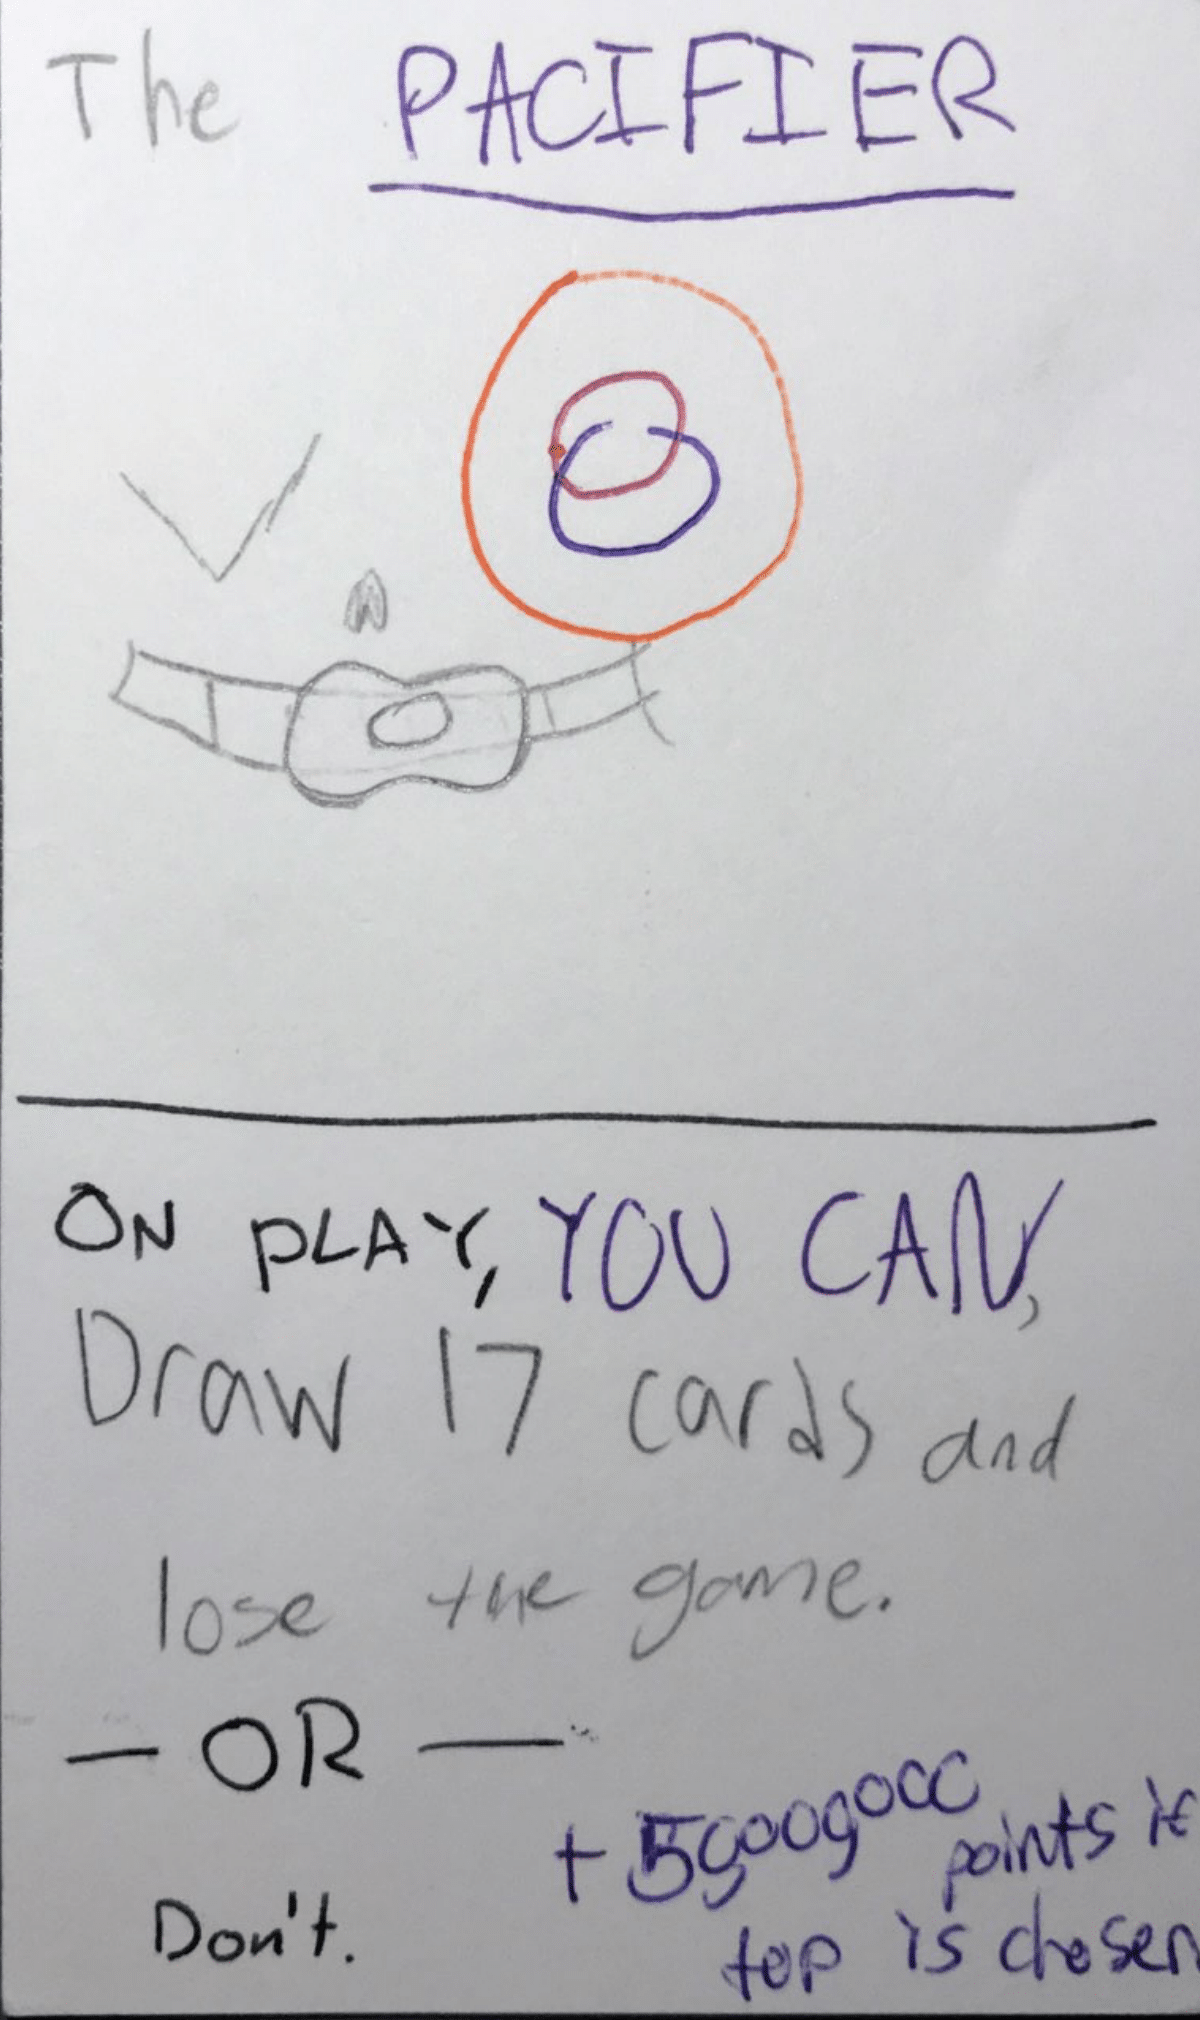 The PACIFIER
ON PLAY, YOU CAN,
Draw 17 cards and
lose the game.
— OR —
+50,000,000 points if
top is chosen
Don't.